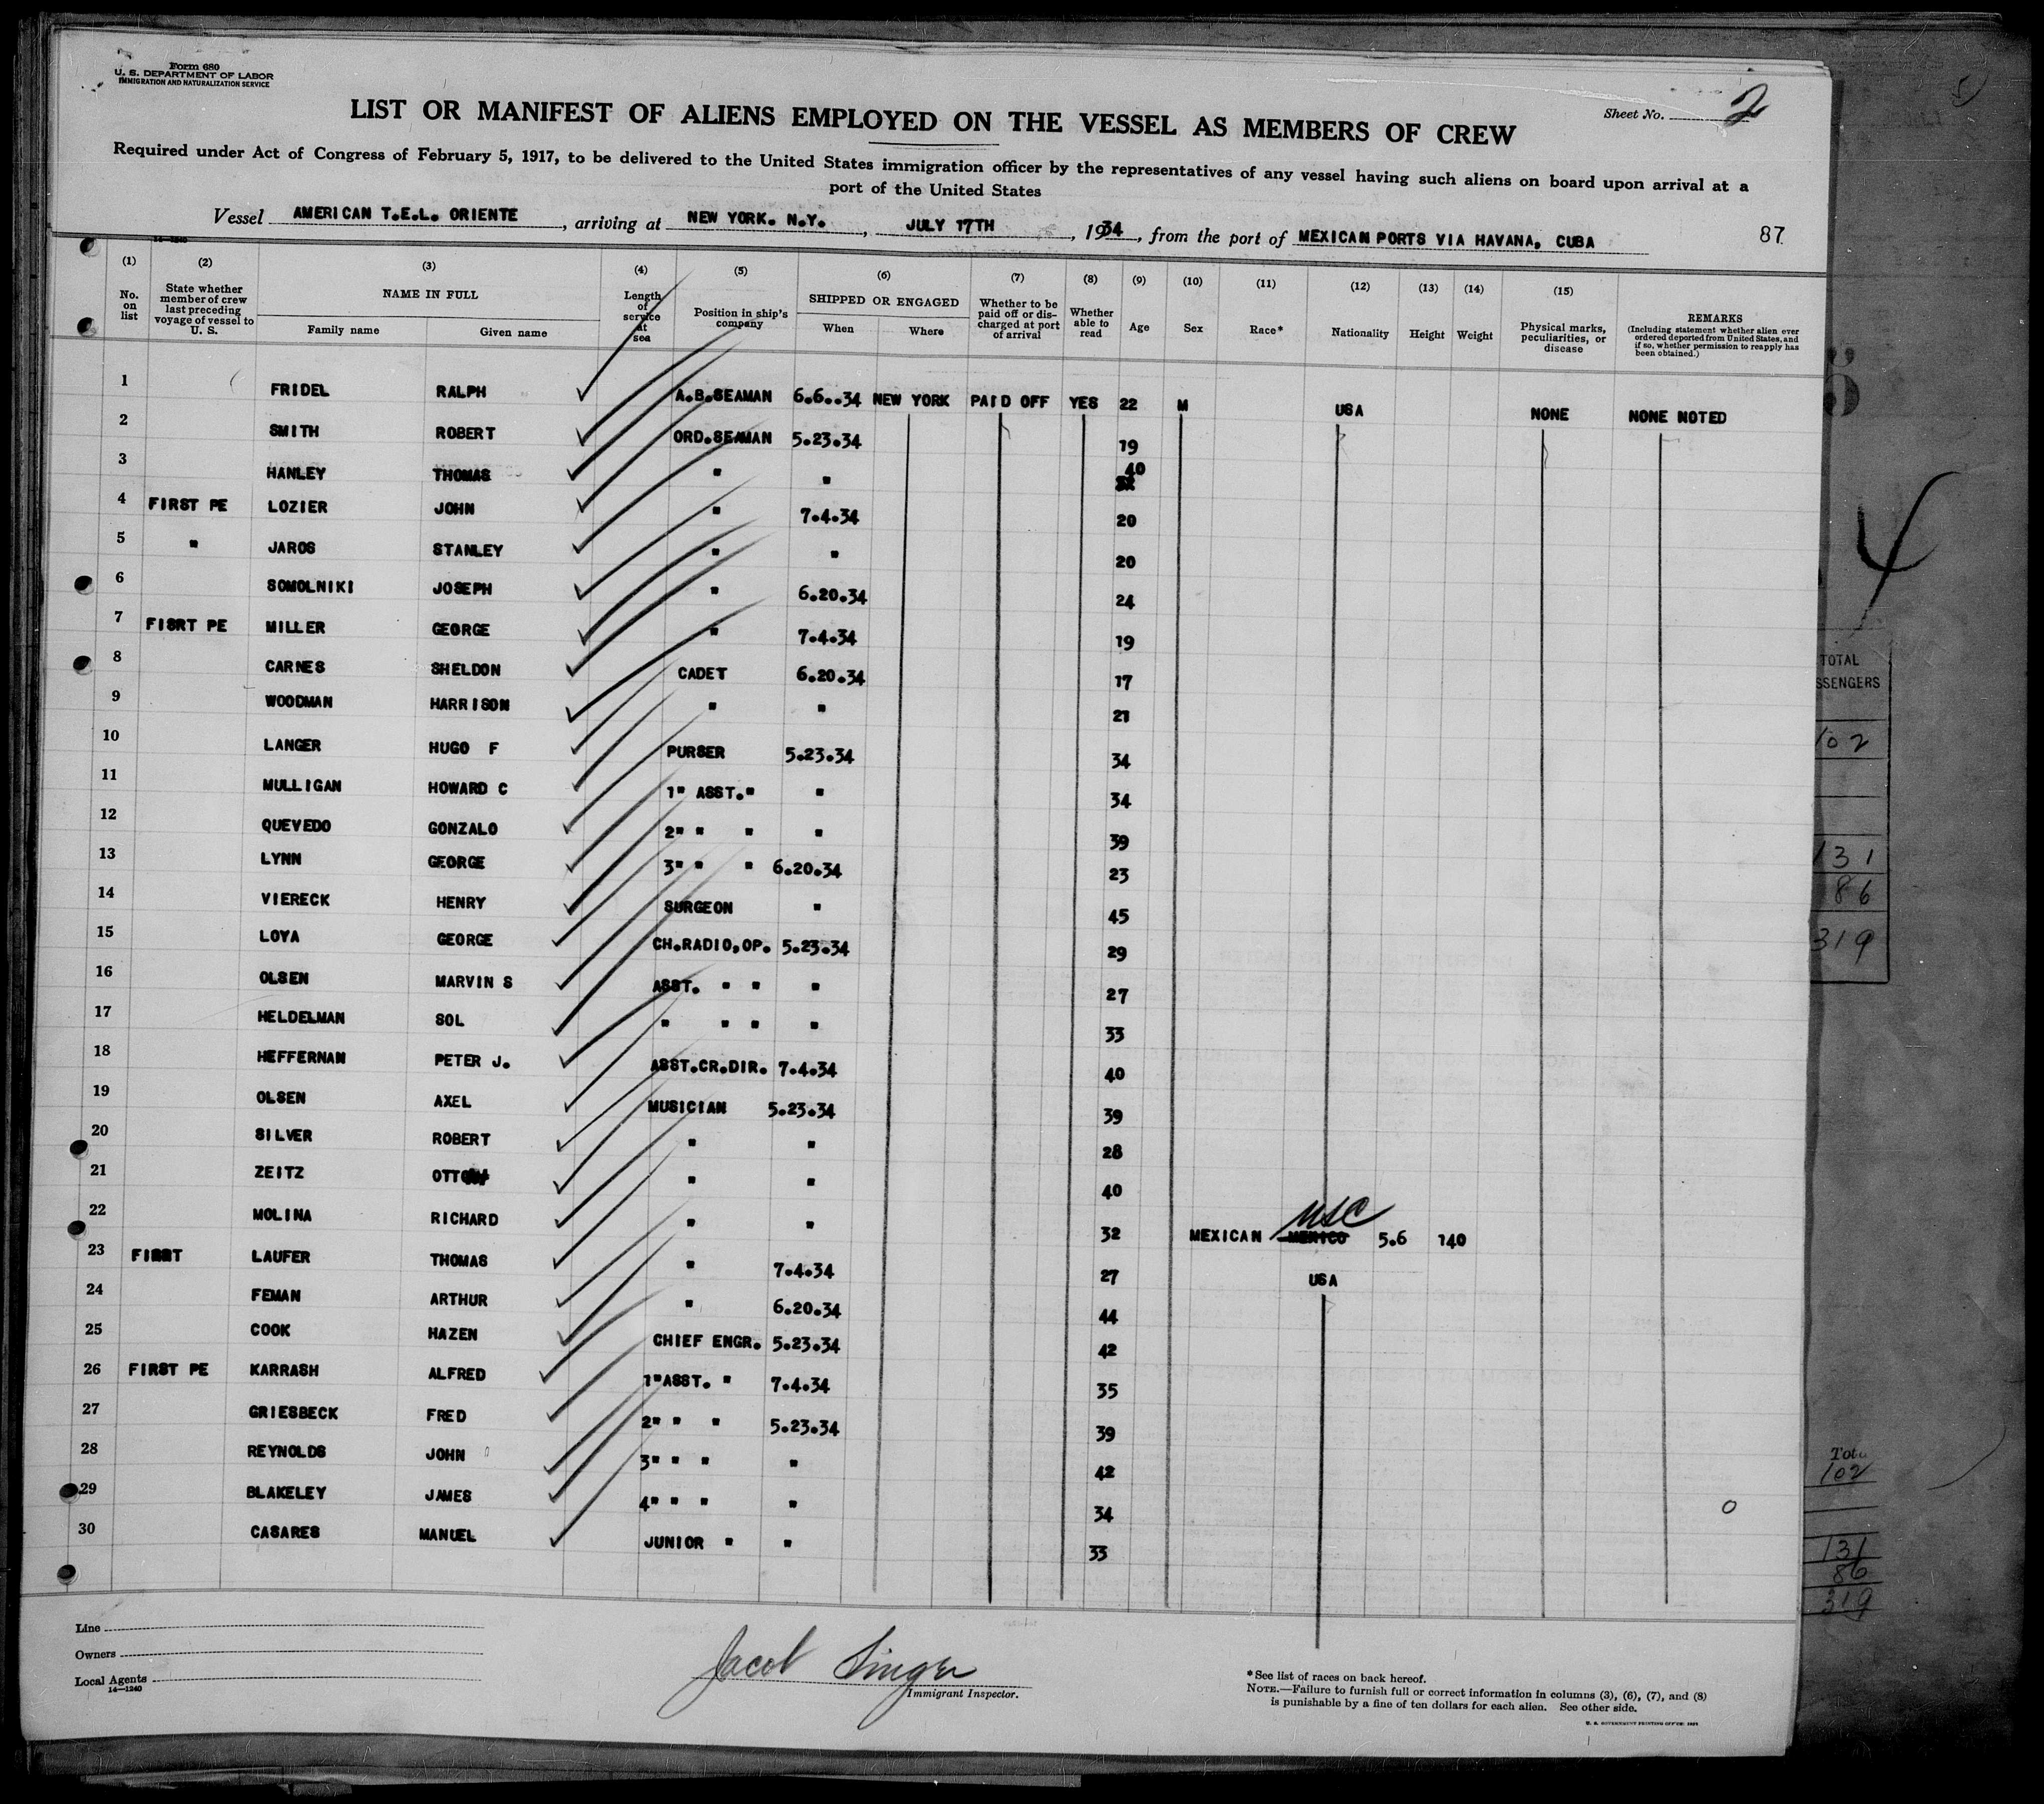 Form 680
U. S. DEPARTMENT OF LABOR
IMMIGRATION AND NATURALIZATION SERVICE
Sheet No. 2
LIST OR MANIFEST OF ALIENS EMPLOYED ON THE VESSEL AS MEMBERS OF CREW
Required under Act of Congress of February 5, 1917, to be delivered to the United States immigration officer by the representatives of any vessel having such aliens on board upon arrival at a
port of the United States
Vessel AMERICAN T.E.L. ORIENTE, arriving at NEW YORK. N.Y., JULY 17TH, 1934, from the port of MEXICAN PORTS VIA HAVANA, CUBA 87
14-1240
(1) (2) (3) (4) (5) (6) (7) (8) (9) (10) (11) (12) (13) (14) (15)
No. on list
State whether member of crew last preceding voyage of vessel to U. S.
NAME IN FULL
Family name Given name
Length of service at sea
Position in ship's company
SHIPPED OR ENGAGED
When Where
Whether to be paid off or discharged at port of arrival
Whether able to read
Age
Sex
Race*
Nationality
Height
Weight
Physical marks, peculiarities, or disease
REMARKS
(Including statement whether alien ever ordered deported from United States, and if so, whether permission to reapply has been obtained.)
1 FRIDEL RALPH A.B.SEAMAN 6.6..34 NEW YORK PAID OFF YES 22 M USA NONE NONE NOTED
2 SMITH ROBERT ORD.SEAMAN 5.23.34 19
3 HANLEY THOMAS " " 40
4 FIRST PE LOZIER JOHN " 7.4.34 20
5 " JAROS STANLEY " " 20
6 SOMOLNIKI JOSEPH " 6.20.34 24
7 FISRT PE MILLER GEORGE " 7.4.34 19
8 CARNES SHELDON CADET 6.20.34 17
9 WOODMAN HARRISON " " 21
10 LANGER HUGO F PURSER 5.23.34 34
11 MULLIGAN HOWARD C 1" ASST." " 34
12 QUEVEDO GONZALO 2" " " " 39
13 LYNN GEORGE 3" " " 6.20.34 23
14 VIERECK HENRY SURGEON " 45
15 LOYA GEORGE CH.RADIO,OP. 5.23.34 29
16 OLSEN MARVIN S ASST. " " " 27
17 HELDELMAN SOL " " " " 33
18 HEFFERNAN PETER J. ASST.CR.DIR. 7.4.34 40
19 OLSEN AXEL MUSICIAN 5.23.34 39
20 SILVER ROBERT " " 28
21 ZEITZ OTTO " " 40
22 MOLINA RICHARD " " 32 MEXICAN MEXICO USC 5.6 140
23 FIRST LAUFER THOMAS " 7.4.34 27 USA
24 FEMAN ARTHUR " 6.20.34 44
25 COOK HAZEN CHIEF ENGR. 5.23.34 42
26 FIRST PE KARRASH ALFRED 1"ASST. " 7.4.34 35
27 GRIESBECK FRED 2" " " 5.23.34 39
28 REYNOLDS JOHN 3" " " " 42
29 BLAKELEY JAMES 4" " " " 34
30 CASARES MANUEL JUNIOR " " 33
Line
Owners
Local Agents
14-1240
Jacob Singer
Immigrant Inspector.
*See list of races on back hereof.
NOTE.—Failure to furnish full or correct information in columns (3), (6), (7), and (8)
is punishable by a fine of ten dollars for each alien. See other side.
4
TOTAL
SSENGERS
102
131
86
319
Tot
102
131
86
319